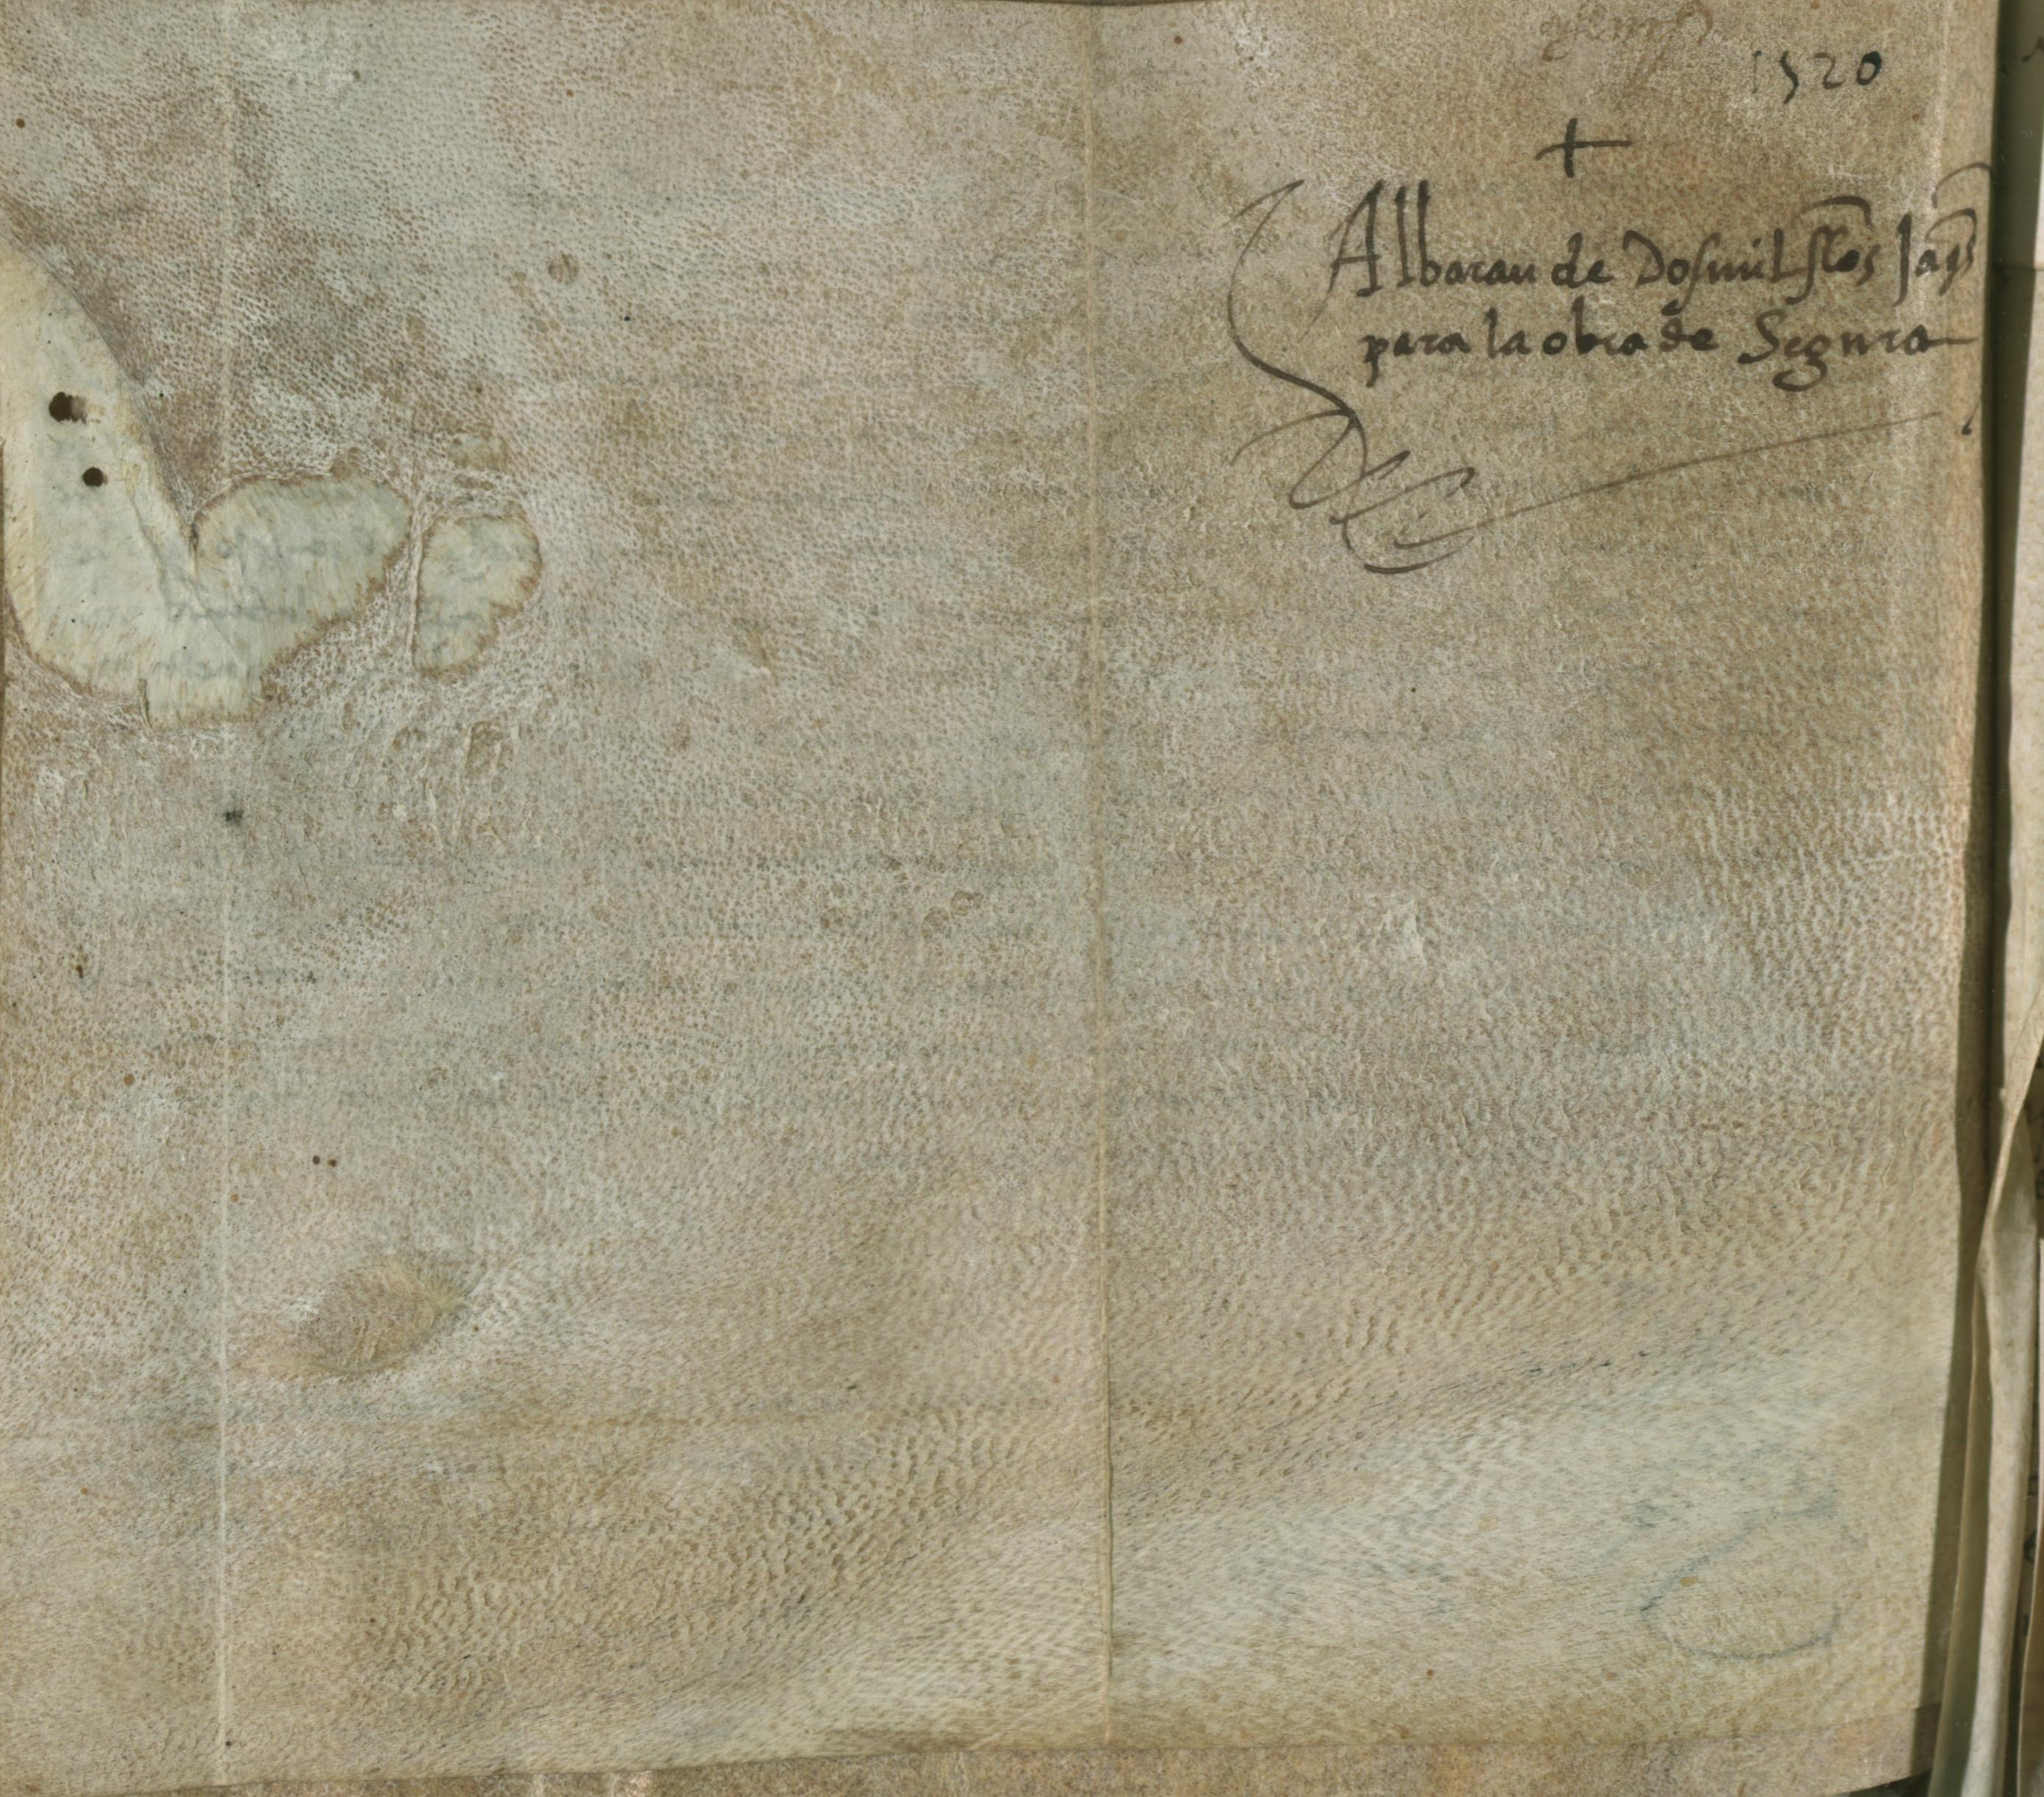 1520
+
Albaran de Dosmil sl̃os Jaq̃s
para la obra de Segura